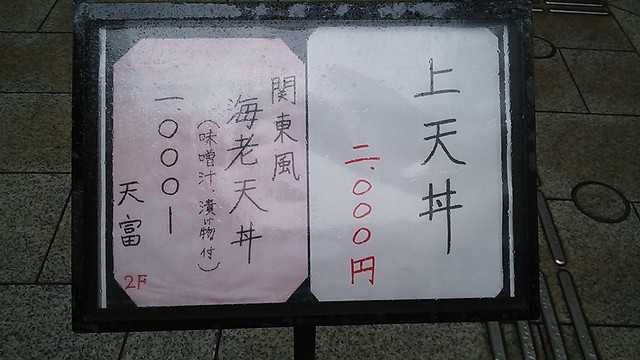 上天丼
二、〇〇〇円
関東風
海老天丼
（味噌汁、漬け物付）
一、〇〇〇ー
天富
2F